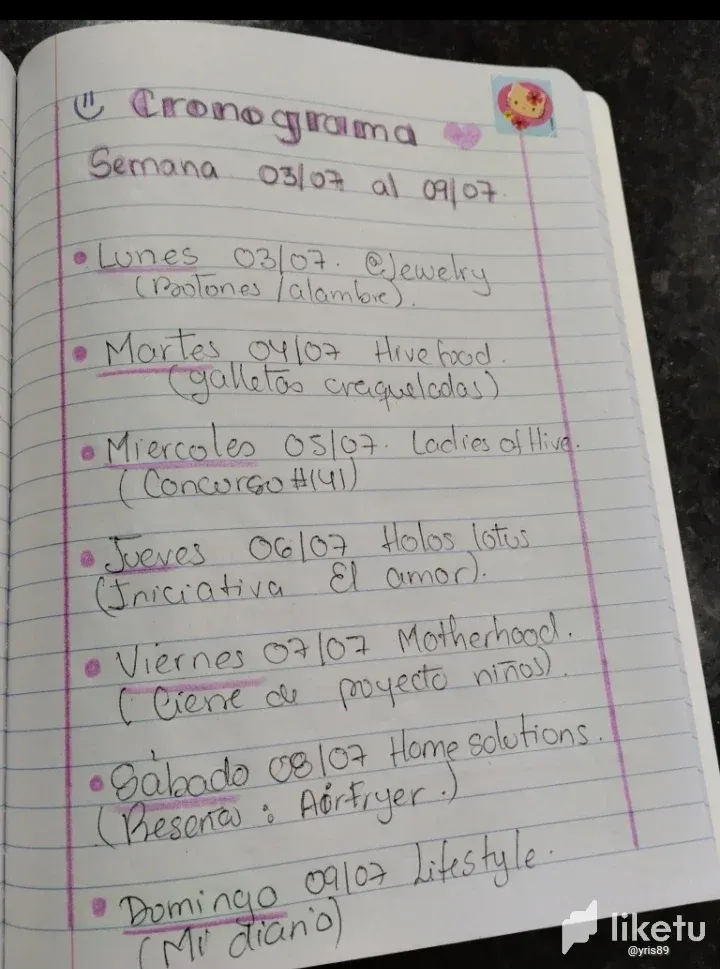 Cronograma
Semana 03/07 al 09/07.
• Lunes 03/07. @Jewelry
(Bootones /alambre).
• Martes 04/07 Hive food.
(galletas craqueladas)
• Miercoles 05/07. Ladies of Hive.
(Concurso #141)
• Jueves 06/07 Holos lotus
(Iniciativa El amor).
• Viernes 07/07 Motherhood.
(Cierre de proyecto niños).
• Sábado 08/07 Home solutions.
(Reseña: AirFryer.)
• Domingo 09/07 Lifestyle.
(Mi diario)
liketu
@yris89